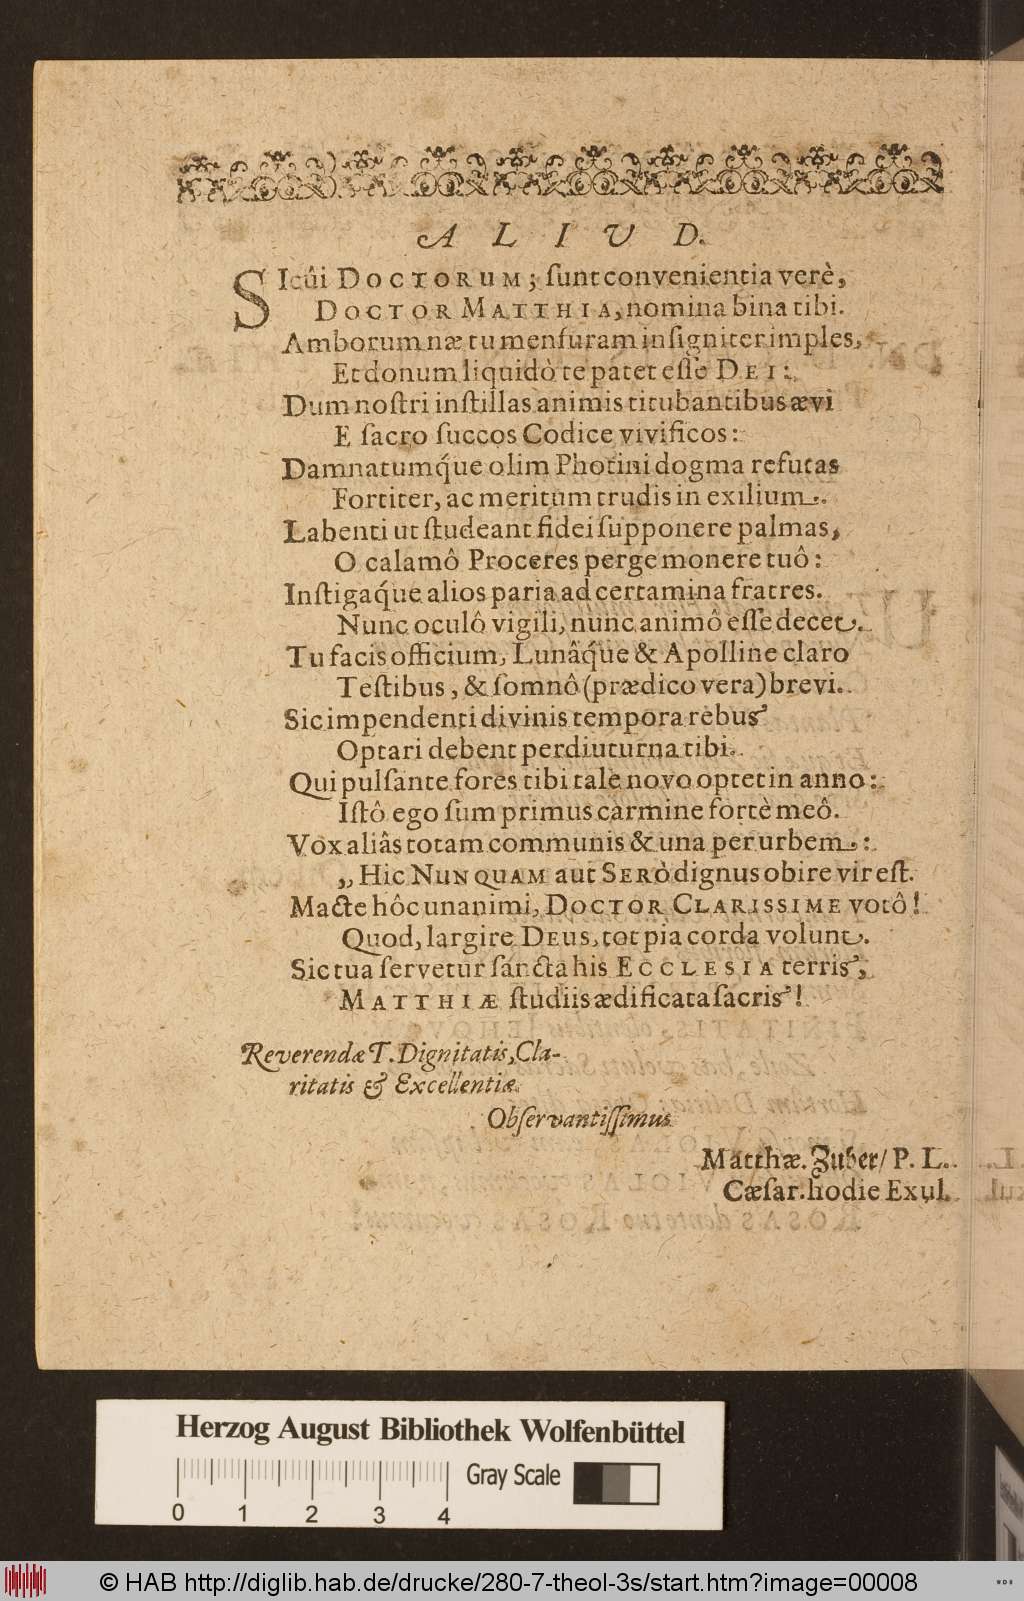 ALIUD.
SIcûi DOCTORUM; ſunt convenientia verè,
DOCTOR MATTHIA, nomina bina tibi.
Amborum næ tu menſuram inſigniter imples,
Et donum liquidò te pátet eſſe DEI:
Dum noſtri inſtillas animis titubantibus ævi
E ſacro ſuccos Codice vivificos:
Damnatumq́ue olim Photini dogma refutas
Fortiter, ac meritum trudis in exilium.
Labenti ut ſtudeant fidei ſupponere palmas,
O calamô Proceres perge monere tuô:
Inſtigaq́ue alios paria ad certamina fratres.
Nunc oculô vigili, nunc animô eſſe decet.
Tu facis officium, Lunâq́ue & Apolline claro
Teſtibus, & ſomnô (prædico vera) brevi.
Sic impendenti divinis tempora rebus
Optari debent perdiuturna tibi.
Qui pulſante fores tibi tale novo optet in anno:
Iſtô ego ſum primus carmine fortè meô.
Vox aliâs totam communis & una per urbem:
„ Hic NUNQUAM aut SERÒ dignus obire vir eſt.
Macte hôc unanimi, DOCTOR CLARISSIME votô!
Quod, largire DEUS, tot pia corda volunt.
Sic tua ſervetur ſancta his ECCLESIA terris,
MATTHIÆ ſtudiis ædificata ſacris!
Reverendæ T. Dignitatis, Cla-
ritatis & Excellentiæ
Obſervantiſſimus
Matthæ. Zuber/ P. L.
Cæſar. hodie Exul.
Herzog August Bibliothek Wolfenbüttel
Gray Scale
0 1 2 3 4
© HAB http://diglib.hab.de/drucke/280-7-theol-3s/start.htm?image=00008